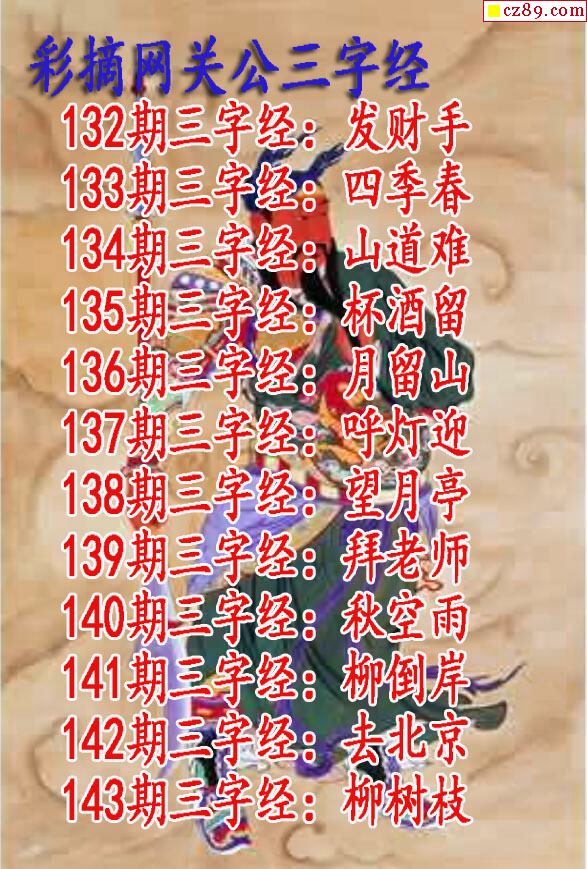 cz89.com
彩摘网关公三字经
132期三字经：发财手
133期三字经：四季春
134期三字经：山道难
135期三字经：杯酒留
136期三字经：月留山
137期三字经：呼灯迎
138期三字经：望月亭
139期三字经：拜老师
140期三字经：秋空雨
141期三字经：柳倒岸
142期三字经：去北京
143期三字经：柳树枝